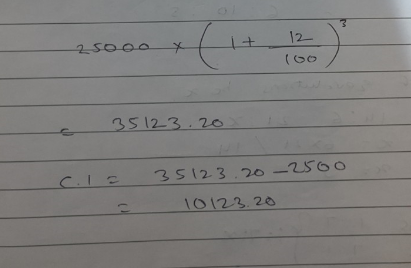 25000 × (1 + 12/100)³
= 35123.20
C.I = 35123.20 - 2500
= 10123.20